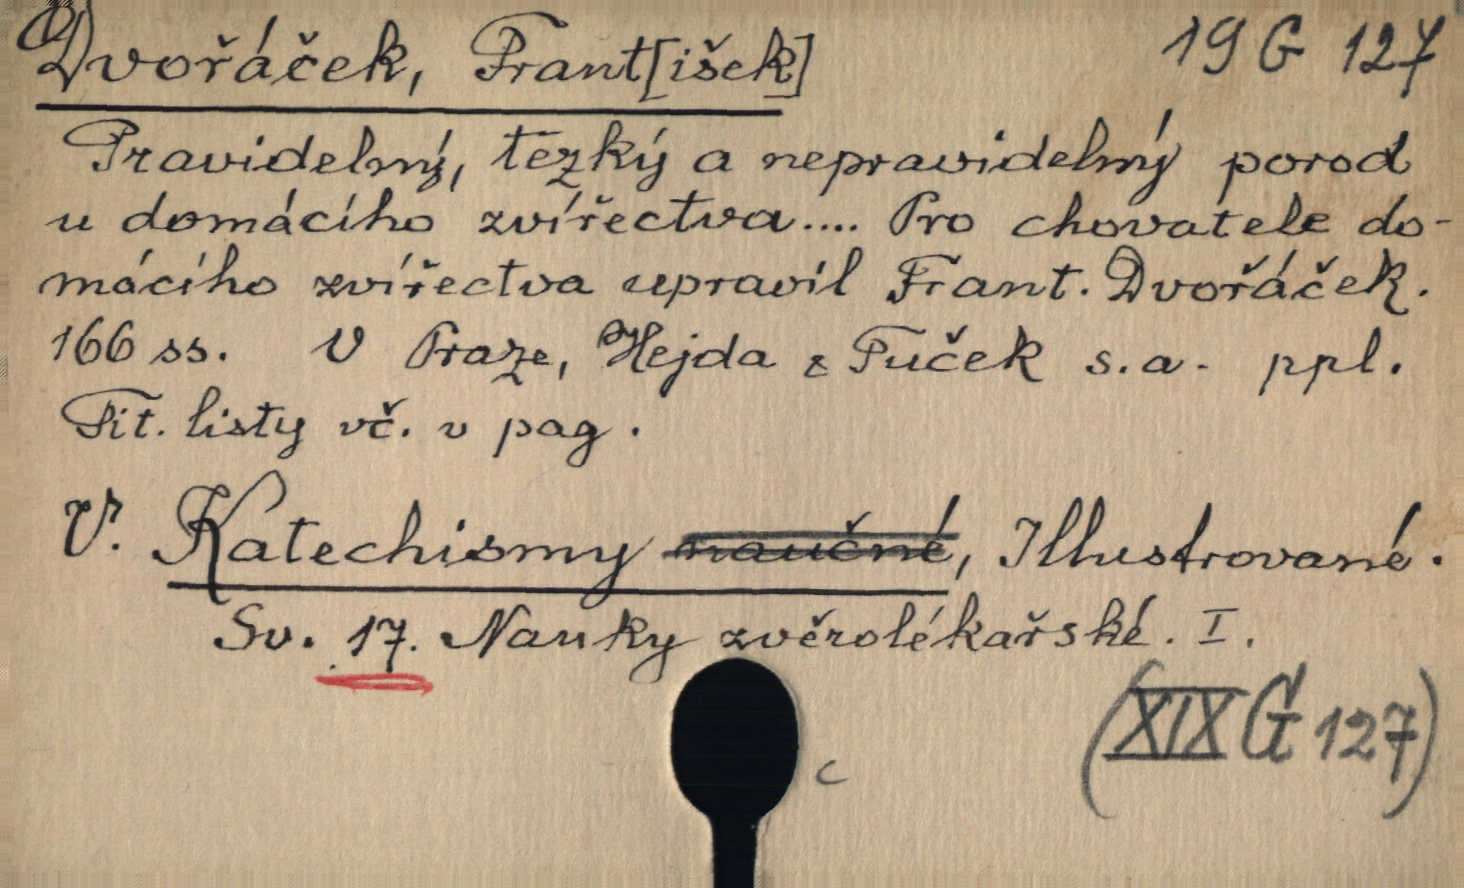 Dvořáček, Frant[išek] 19 G 127
Pravidelný, tězký a nepravidelný porod
u domácího zvířectva.... Pro chovatele do-
mácího zvířectva upravil Frant. Dvořáček.
166 ss. V Praze, Hejda & Tuček s.a. ppl.
Tit. listy vč. v pag.
V. Katechismy naučné, Illustrované.
Sv. 17. Nauky zvěrolékařské. I.
(XIX G 127)
c